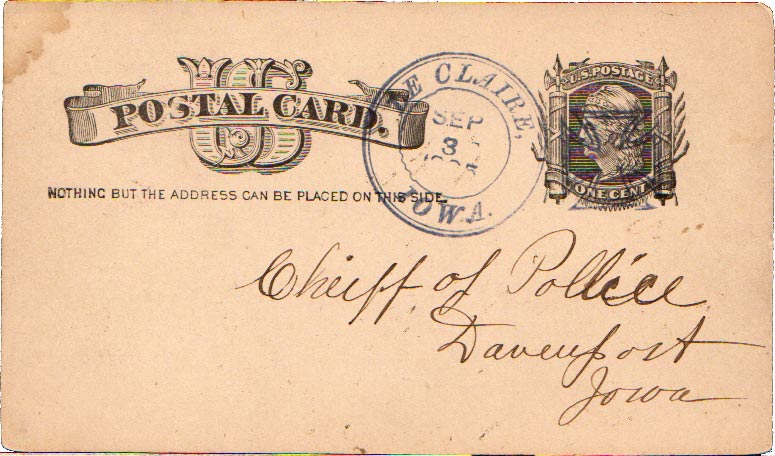 US
POSTAL CARD.
NOTHING BUT THE ADDRESS CAN BE PLACED ON THIS SIDE.
LE CLAIRE,
SEP
3
IOWA.
U.S. POSTAGE
ONE CENT
Cheiff of Pollice
Davenport
Iowa